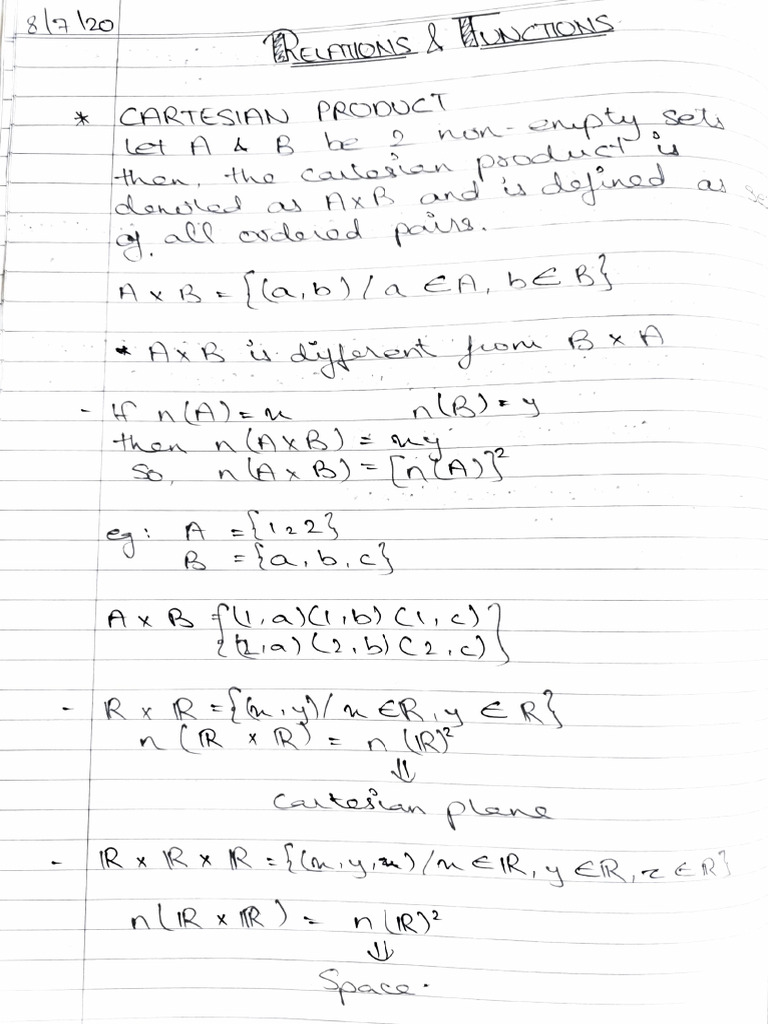 8/7/20
RELATIONS & FUNCTIONS
* CARTESIAN PRODUCT
Let A & B be 2 non-empty sets
then, the cartesian product is
denoted as A×B and is defined as
of all ordered pairs.
A × B = {(a,b) / a ∈ A, b ∈ B}
* A×B is different from B × A
- If n(A) = x n(B) = y
then n(A×B) = xy
So, n(A × B) = [n(A)]²
eg: A = {1, 2}
B = {a, b, c}
A × B = {(1,a) (1,b) (1,c)
(2,a) (2,b) (2,c)}
- R × R = {(x,y) / x ∈ R, y ∈ R}
n (R × R) = n (R)²
⇓
Cartesian plane
- R × R × R = {(x,y,z) / x ∈ R, y ∈ R, z ∈ R}
n(R × R) = n(R)²
⇓
Space.